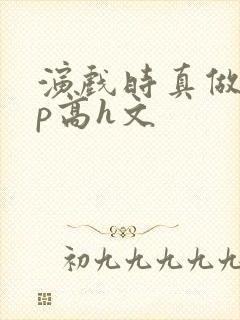 演戏时真做
p高h文
初九九九九九